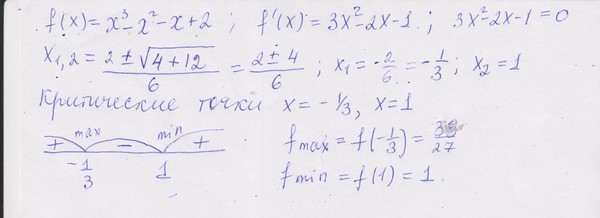 f(x) = x³ - x² - x + 2 ; f'(x) = 3x² - 2x - 1 ; 3x² - 2x - 1 = 0
x₁,₂ = (2 ± √(4 + 12))/6 = (2 ± 4)/6 ; x₁ = -2/6 = -1/3 ; x₂ = 1
Критические точки x = -1/3, x = 1
+ max - min +
-1/3 1
f max = f(-1/3) = /27
f min = f(1) = 1.